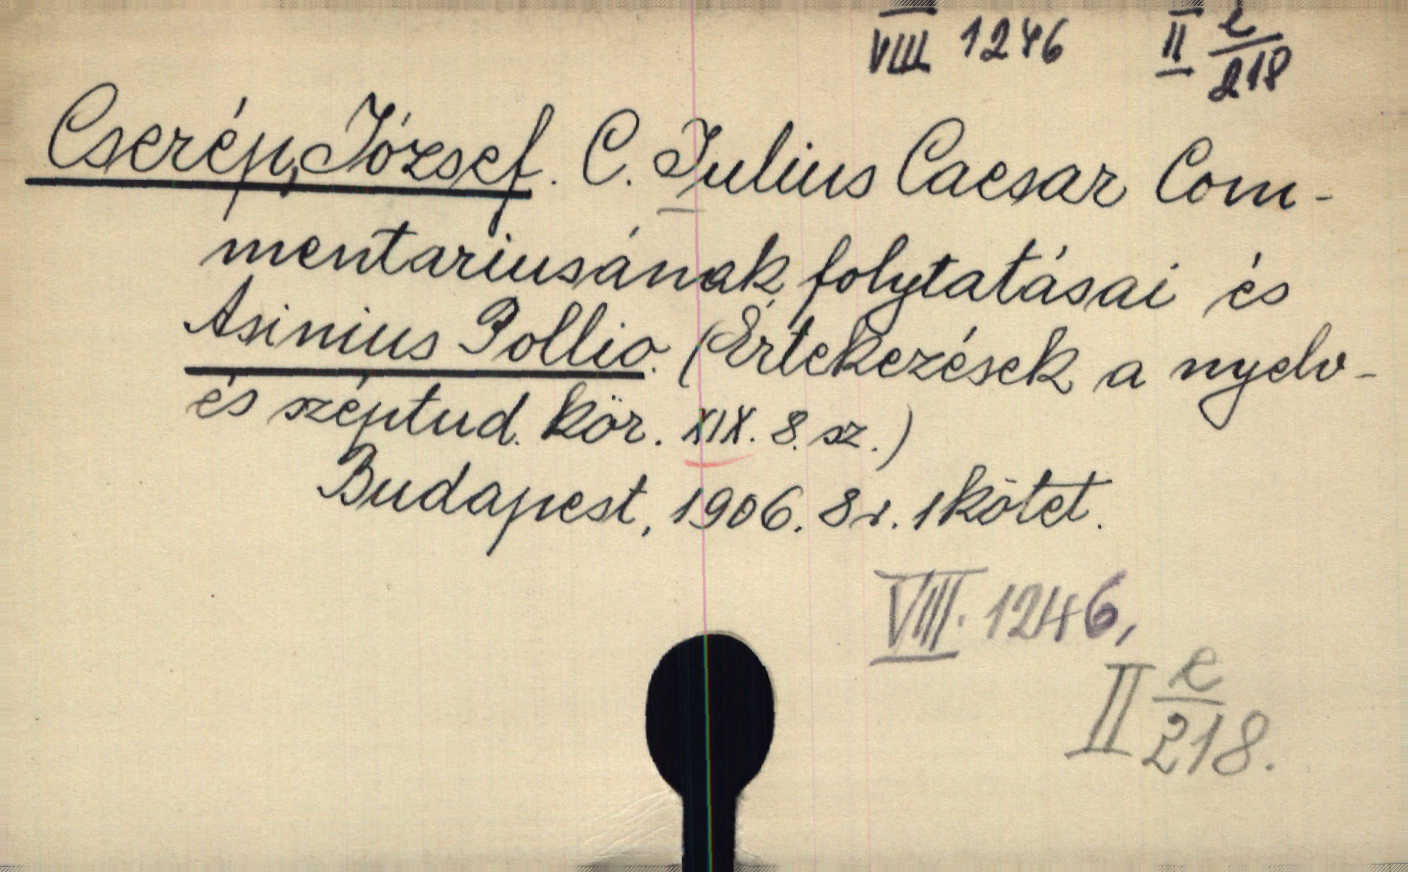 VIII 1246 II e/218
Cserép, József. C. Julius Caesar Com-
mentariusának folytatásai és
Asinius Pollio. (Értekezések a nyelv-
és széptud. kör. XIX. 8. sz.)
Budapest, 1906. 8r. 1 kötet.
VIII. 1246,
II e/218.